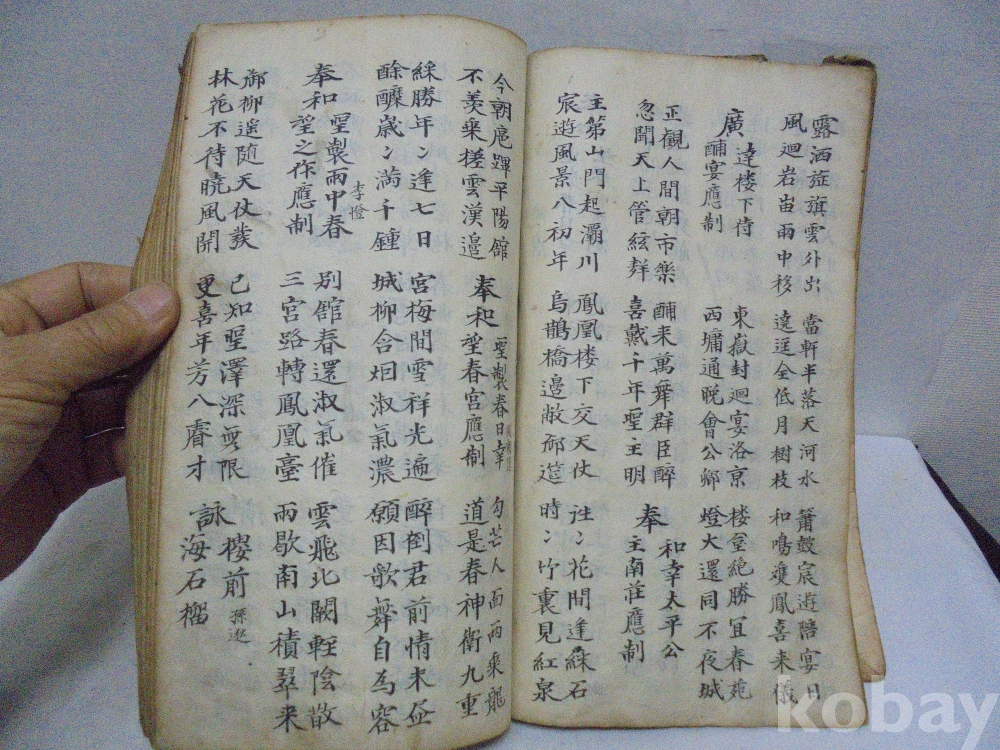 露洒旌旗雲外出
風廻岩岫雨中移
當軒半落天河水
遶逕全低月樹枝
簫鼓宸遊陪宴日
和鳴雙鳳喜来儀
廣達楼下侍
酺宴應制
東嶽封廻宴洛京
西墉通晩會公卿
楼臺絶勝冝春苑
燈火還同不夜城
正觀人間朝市樂
忽聞天上管絃聲
酺来萬舞群臣醉
喜戴千年聖主明
奉和幸太平公
主南莊應制
主第山門起灞川
宸遊風景入初年
鳳凰楼下交天仗
烏鵲橋邊敞御筵
往々花間逢綵石
時々竹裏見紅泉
今朝扈蹕平陽館
不羡乗槎雲漢邊
奉和聖製春日幸
望春宮應制
勾芒人面兩乗龍
道是春神衛九重
綵勝年々逢七日
酴醿歳々満千鍾
宮梅間雪祥光遍
城柳含烟淑氣濃
醉倒君前情未盡
願因歌舞自為容
奉和聖製雨中春
望之作應制
李憕
別館春還淑氣催
三宮路轉鳳凰臺
雲飛北闕輕陰散
雨歇南山積翠来
御柳遥随天仗發
林花不待曉風開
已知聖澤深無限
更喜年芳入睿才
詠楼前
海石榴
孫逖
kobay